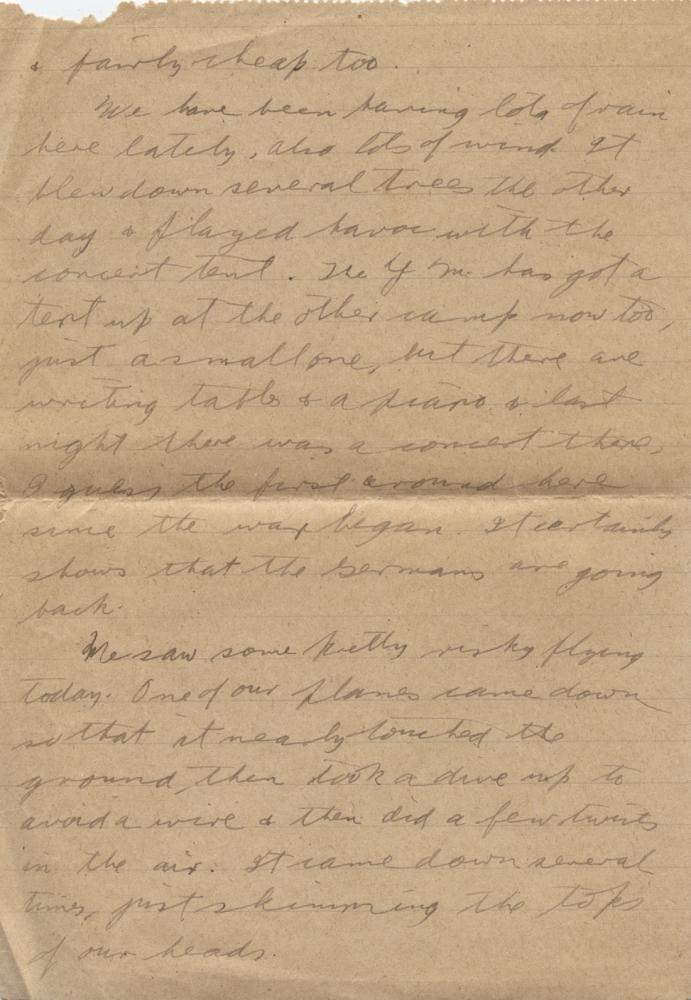 & fairly cheap too.
We have been having lots of rain
here lately, also lots of wind. It
blew down several trees the other
day & played havoc with the
concert tent. The Y M. has got a
tent up at the other camp now too,
just a small one, but there are
writing tables & a piano & last
night there was a concert there,
I guess the first around here
since the war began. It certainly
shows that the Germans are going
back.
We saw some pretty risky flying
today. One of our planes came down
so that it nearly touched the
ground then took a dive up to
avoid a wire & then did a few twists
in the air. It came down several
times, just skimming the tops
of our heads.